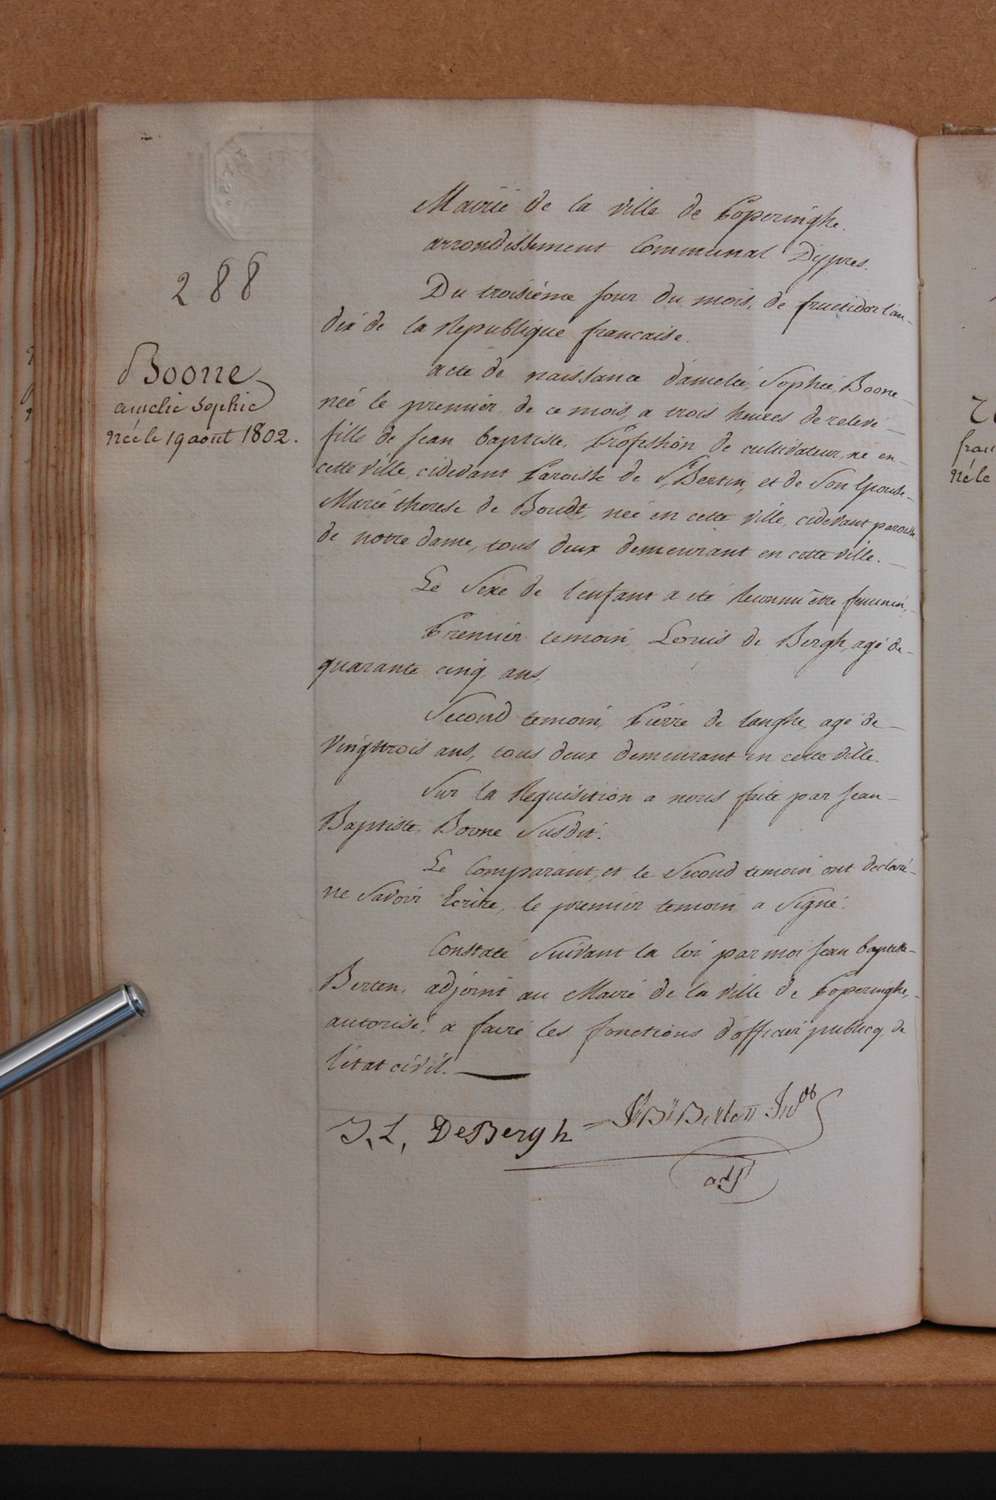 288
Boone
amelie Sophie
née le 19 aout 1802.
Mairie de la ville de Poperinghe.
arrondissement Communal D'ypres.
Du troisiéme jour du mois, de fructidor l'an
dix de la Republique francaise.
acte de naissance d'amelie, Sophie, Boone
née le premier de ce mois, a trois heures de relevé
fille de Jean baptiste, Profession de cultivateur, né en
cette Ville, cidevant Paroisse de St Bertin, et de Son Epouse
Marie therese de Boudt, née en cette ville, cidevant paroisse
de notre dame, tous deux demeurant en cette ville.
Le Sexe de l'enfant a été Reconnu être feminin,
Premier temoin, Louis de Bergh, agé de
quarante cinq ans,
Second temoin, Pierre de langhe, agé de
Vingttrois ans, tous deux demeurant en cette ville.
Sur la Requisition a nous faite par Jean
Baptiste, Boone Susdit.
Le Comparant, et le Second temoin ont declaré
ne Savoir Ecrire, le premier temoin a Signé.
Constaté Suivant la loi par moi Jean baptiste
Berten, adjoint au Maire de la Ville de Poperinghe,
autorisé, a faire les fonctions d'officier publicq de
l'état civil.
J. L. DeBergh
adjt
née le